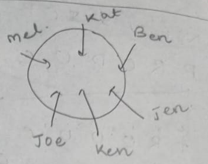 Kat
Mel.
Ben
Jen.
Joe
Ken